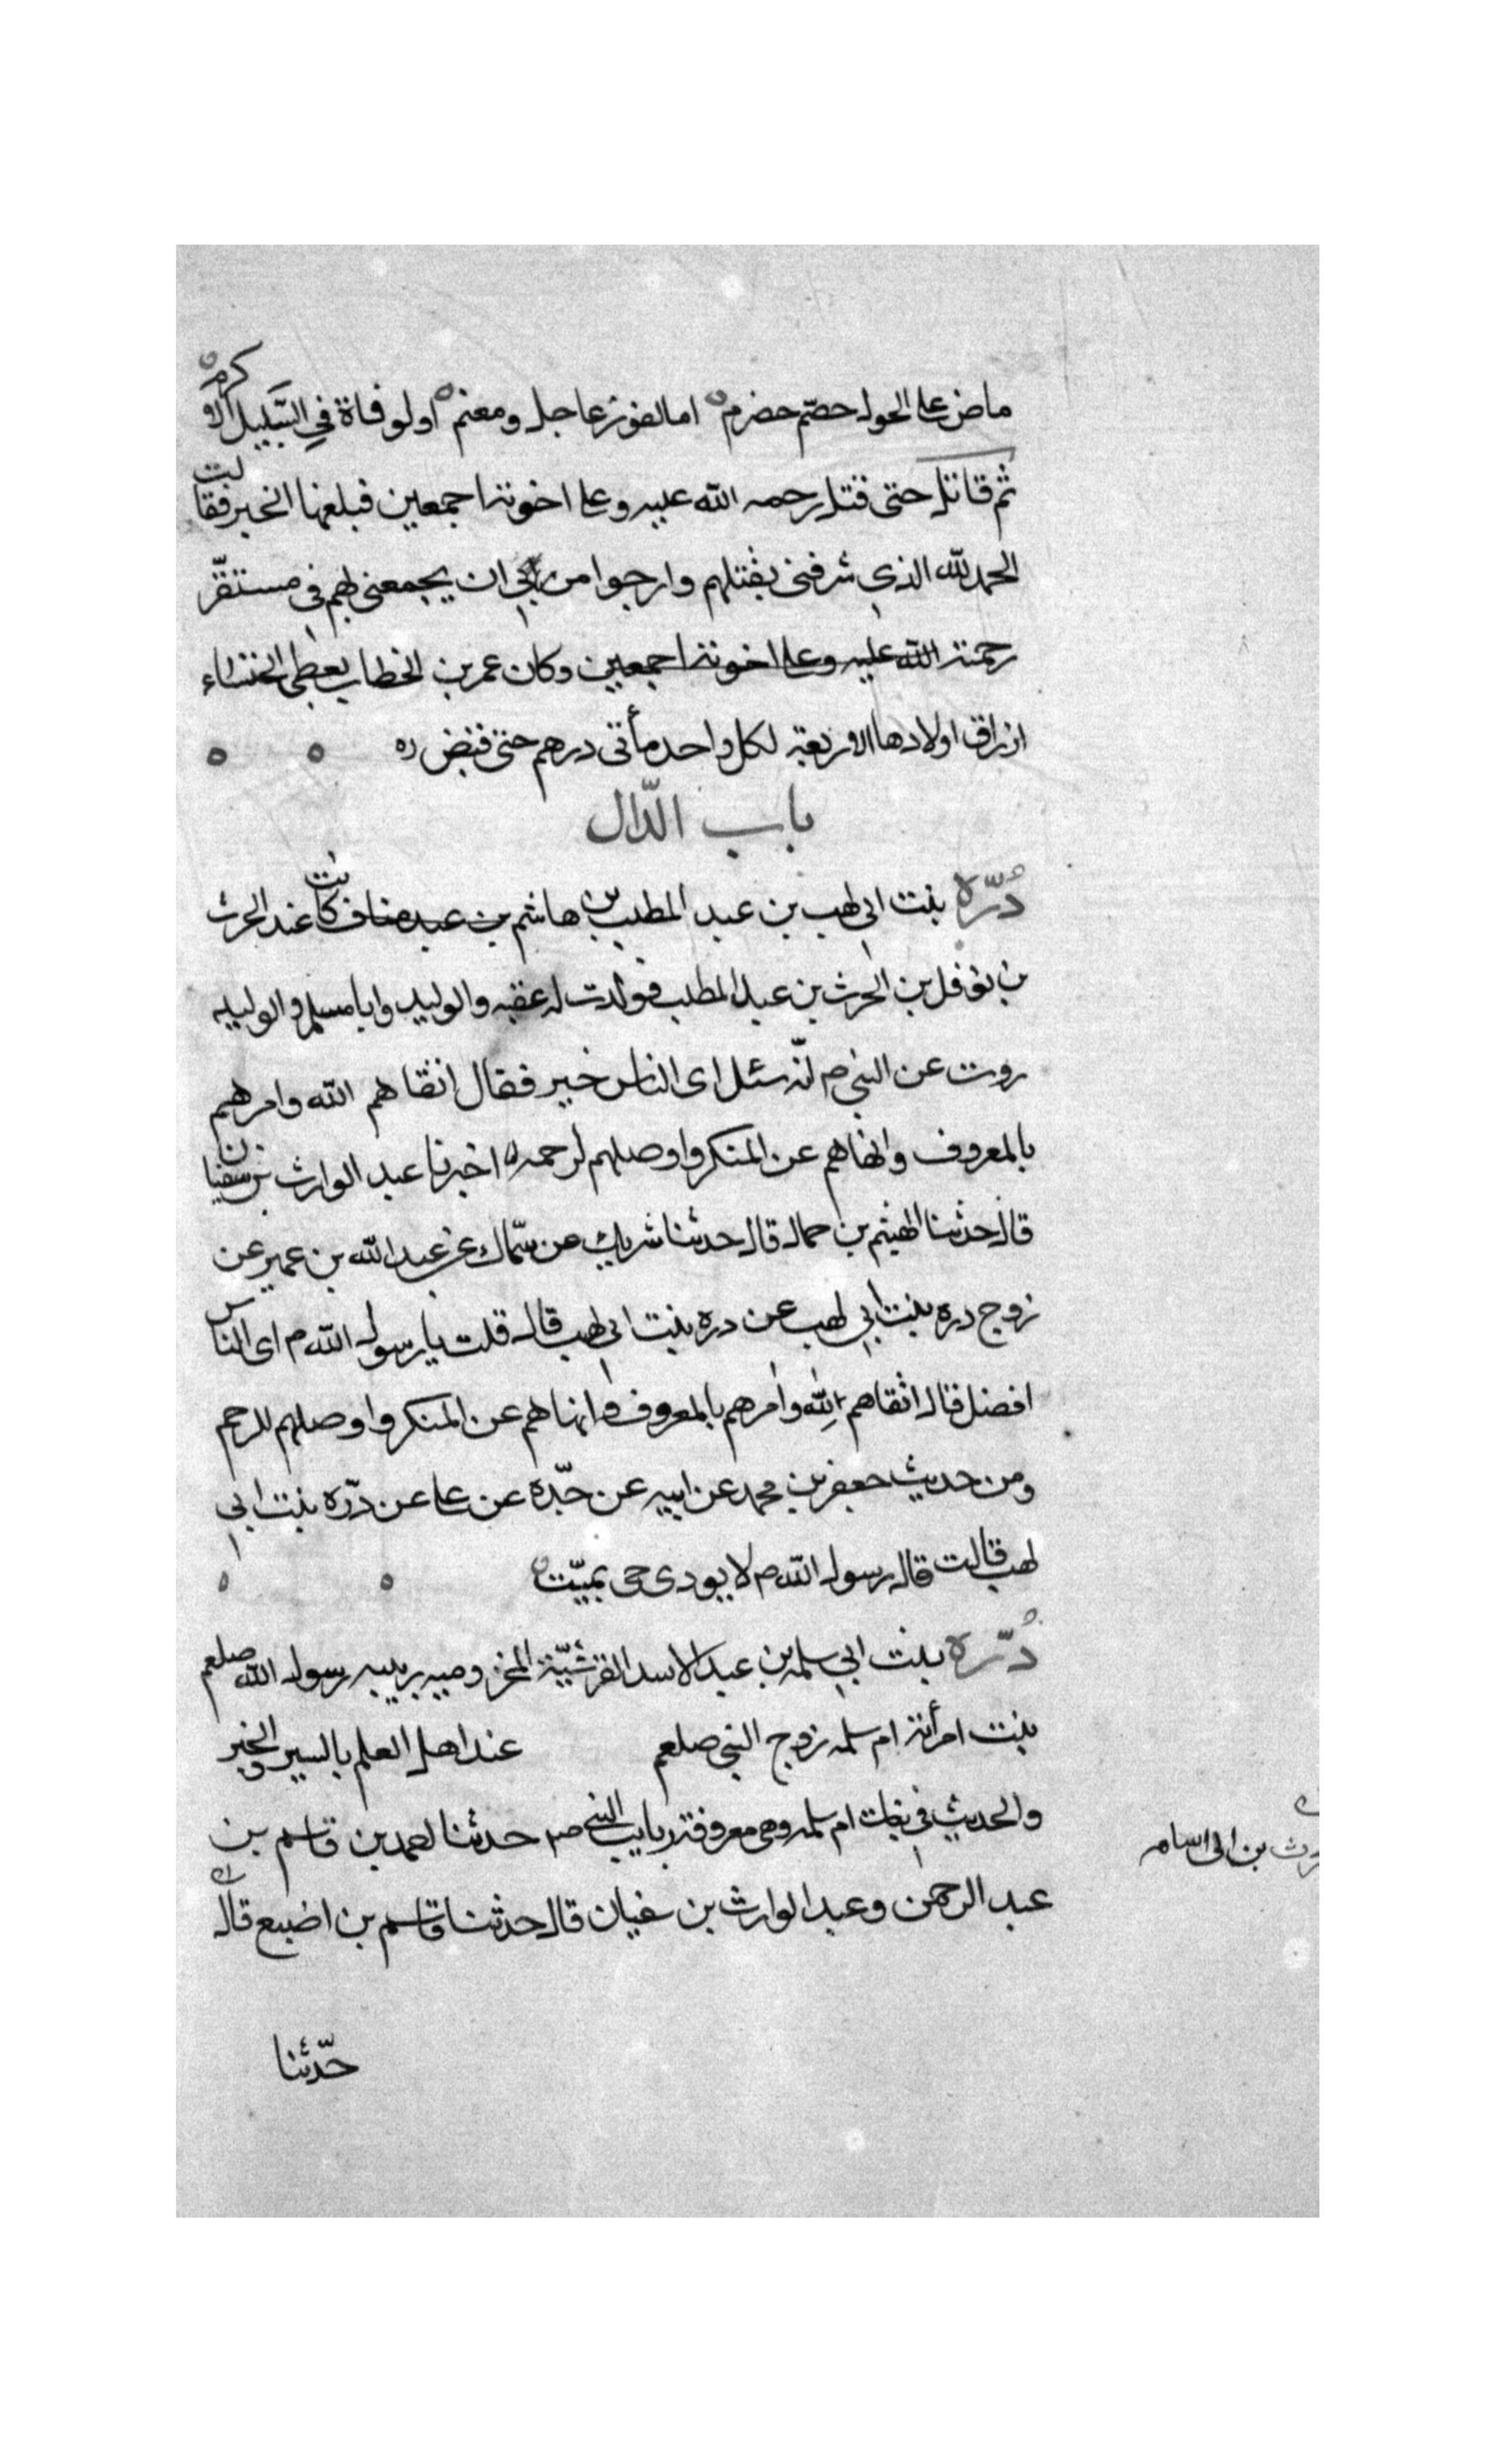 ماض على الحول حصّم حضرم اما لفوز عاجل ومغنم او لوفاة في السّبيل الاكرم
ثم قاتل حتى قتل رحمه الله عليه وعلى اخوته اجمعين فبلغها الخبر فقالت
الحمد لله الذي شرفنى بقتلهم وارجوا من ربي ان يجمعنى بهم فى مستقرّ
رحمته الله عليه وعلى اخوته اجمعين وكان عمر بن الخطاب يعطى الخنساء
ارزاق اولادها الاربعة لكل واحد مأتى درهم حتى قبض ره
باب الدّال
دُرّه بنت ابي لهب بن عبد المطلب بن هاشم بن عبد مناف كانت عند الحرث
بن نوفل بن الحرث بن عبد المطلب فولدت له عقبه والوليد وابا مسلم والوليد
روت عن النبي ص انّه سئل اى الناس خير فقال اتقاهم الله وامرهم
بالمعروف وانهاهم عن المنكر واوصلهم لرحمه اخبرنا عبد الوارث بن سفيان
قال حدثنا الهيثم بن حماد قال حدثنا شريك عن سمّاك عن عبد الله بن عمير عن
زوج دره بنت ابي لهب عن دره بنت ابي لهب قال قلت يا رسول الله م اى الناس
افضل قال اتقاهم لله وامرهم بالمعروف وانهاهم عن المنكر واوصلهم للرحم
ومن حديث جعفر بن محمد عن ابيه عن جدّه عن على عن درّه بنت ابي
لهب قالت قال رسول الله م لا يودى حى بميّت
دُرّه بنت ابي سلمه بن عبد الاسد القرشيّة المخزوميه ربيبه رسول الله صلعم
بنت امرأته ام سلمه زوج النبي صلعم عند اهل العلم بالسير والخبر
والحديث في بنات ام سلمه وهى معروفة ربايب النبي ص حدثنا احمد بن قاسم بن
عبد الرحمن وعبد الوارث بن سفيان قال حدثنا قاسم بن اضبع قال
حدّثنا
رث بن ابى اسامه